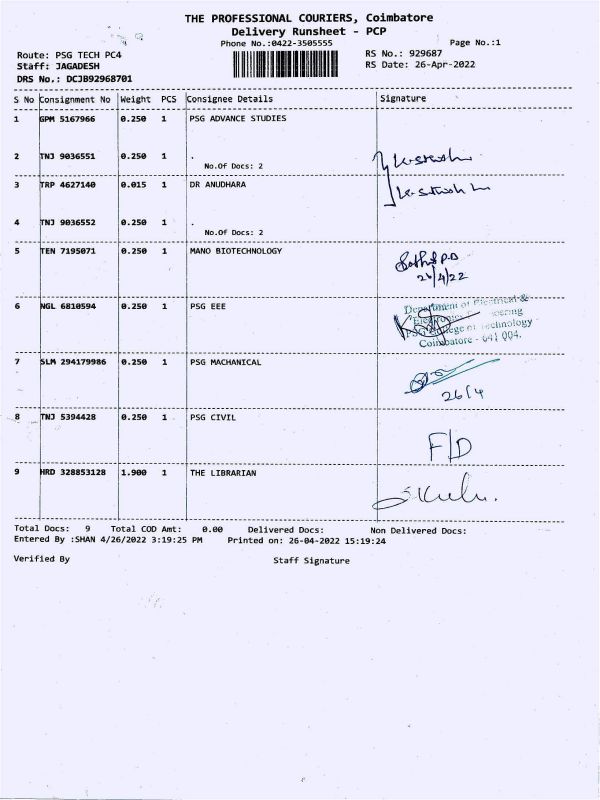 THE PROFESSIONAL COURIERS, Coimbatore
Delivery Runsheet - PCP
Phone No.:0422-3505555
Page No.:1
Route: PSG TECH PC4
Staff: JAGADESH
DRS No.: DCJB92968701
RS No.: 929687
RS Date: 26-Apr-2022
S No Consignment No Weight PCS Consignee Details Signature
1 GPM 5167966 0.250 1 PSG ADVANCE STUDIES
2 TNJ 9036551 0.250 1 .
No.Of Docs: 2
3 TRP 4627140 0.015 1 DR ANUDHARA
4 TNJ 9036552 0.250 1 .
No.Of Docs: 2
5 TEN 7195071 0.250 1 MANO BIOTECHNOLOGY
26/4/22
6 NGL 6810594 0.250 1 PSG EEE
Department of Electrical &
PSG College of Technology
Coimbatore - 641 004.
7 SLM 294179986 0.250 1 PSG MACHANICAL
26/4
8 TNJ 5394428 0.250 1 PSG CIVIL
F/D
9 HRD 328853128 1.900 1 THE LIBRARIAN
Total Docs: 9 Total COD Amt: 0.00 Delivered Docs: Non Delivered Docs:
Entered By :SHAN 4/26/2022 3:19:25 PM Printed on: 26-04-2022 15:19:24
Verified By Staff Signature